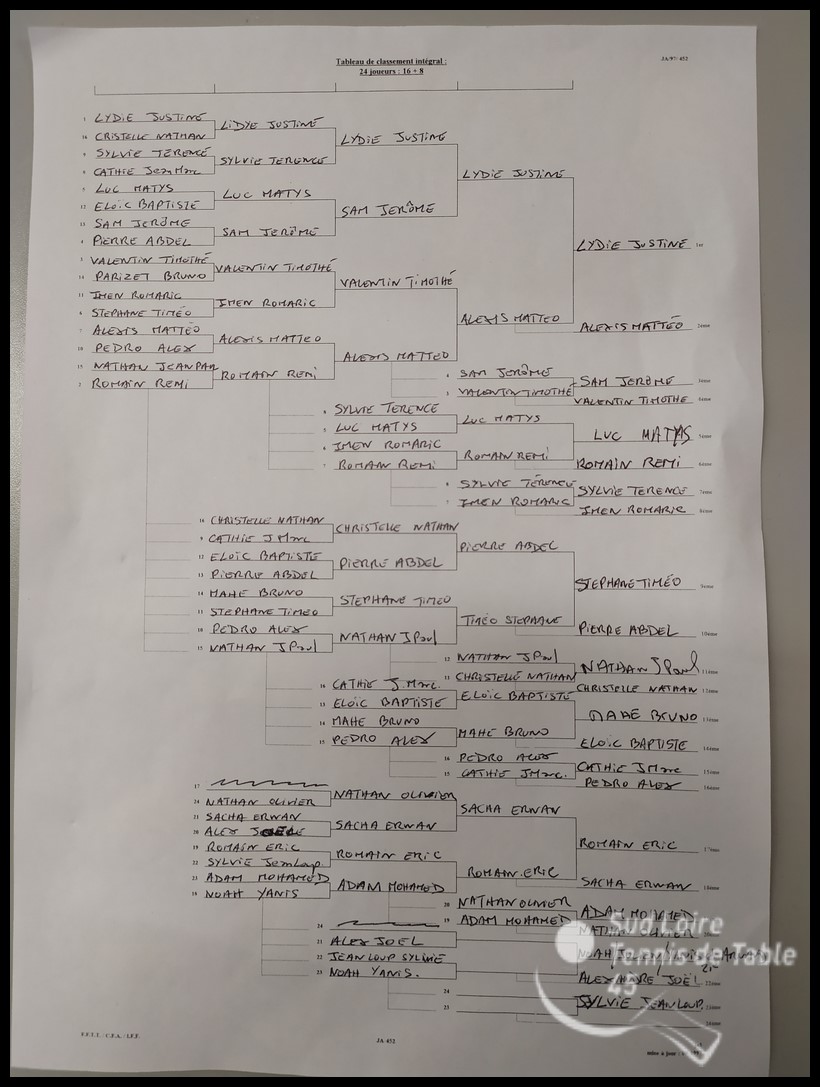 Tableau de classement intégral :
24 joueurs : 16 + 8
JA/97/ 452
1 LYDIE JUSTINE
16 CRISTELLE NATHAN
9 SYLVIE TERENCE
8 CATHIE Jean Marc
5 LUC MATYS
12 ELOÏC BAPTISTE
13 SAM JERÔME
4 PIERRE ABDEL
3 VALENTIN TIMOTHÉ
14 PARIZET BRUNO
11 IMEN ROMARIC
6 STEPHANE TIMÉO
7 ALEXIS MATTÉO
10 PEDRO ALEX
15 NATHAN JEANPAUL
2 ROMAIN REMI
LIDYE JUSTINE
SYLVIE TERENCE
LUC MATYS
SAM JERÔME
VALENTIN TIMOTHÉ
IMEN ROMARIC
ALEXIS MATTEO
ROMAIN REMI
LYDIE JUSTINE
SAM JERÔME
VALENTIN TIMOTHÉ
ALEXIS MATTEO
LYDIE JUSTINE
ALEXIS MATTEO
LYDIE JUSTINE 1er
ALEXIS MATTÉO 2ème
4 SAM JERÔME
3 VALENTIN TIMOTHÉ
SAM JERÔME 3ème
VALENTIN TIMOTHE 4ème
8 SYLVIE TERENCE
5 LUC MATYS
6 IMEN ROMARIC
7 ROMAIN REMI
LUC MATYS
ROMAIN REMI
LUC MATYS 5ème
ROMAIN REMI 6ème
8 SYLVIE TÉRENCE
7 IMEN ROMARIC
SYLVIE TERENCE 7ème
IMEN ROMARIC 8ème
16 CHRISTELLE NATHAN
9 CATHIE J Marc
12 ELOÏC BAPTISTE
13 PIERRE ABDEL
14 MAHE BRUNO
11 STEPHANE TIMEO
10 PEDRO ALEX
15 NATHAN JPaul
CHRISTELLE NATHAN
PIERRE ABDEL
STEPHANE TIMEO
NATHAN JPaul
PIERRE ABDEL
TIMÉO STEPHANE
STEPHANE TIMÉO 9ème
PIERRE ABDEL 10ème
12 NATHAN JPaul
11 CHRISTELLE NATHAN
NATHAN JPaul 11ème
CHRISTELLE NATHAN 12ème
16 CATHIE J.Marc.
13 ELOÏC BAPTISTE
14 MAHE BRUNO
15 PEDRO ALEX
ELOÏC BAPTISTE
MAHE BRUNO
MAHE BRUNO 13ème
ELOIC BAPTISTE 14ème
16 PEDRO ALEX
15 CATHIE JMarc.
CATHIE JMarc 15ème
PEDRO ALEX 16ème
17
24 NATHAN OLIVIER
21 SACHA ERWAN
20 ALEX
19 ROMAIN ERIC
22 SYLVIE JeanLoup.
23 ADAM MOHAMED
18 NOAH YANIS
NATHAN OLIVIER
SACHA ERWAN
ROMAIN ERIC
ADAM MOHAMED
SACHA ERWAN
ROMAIN.ERIC
ROMAIN ERIC 17ème
SACHA ERWAN 18ème
20 NATHAN OLIVIER
19 ADAM MOHAMED
ADAM MOHAMED
NATHAN
24
21 ALEX JOEL
22 JEAN LOUP SYLVIE
23 NOAH YANIS.
NOAH
ALEX JOËL 22ème
24
23
SYLVIE JEAN LOUP. 23ème
24ème
Sud Loire
Tennis de Table
45
F.F.T.T. / C.F.A. / I.F.F.
JA 452
mise à jour :